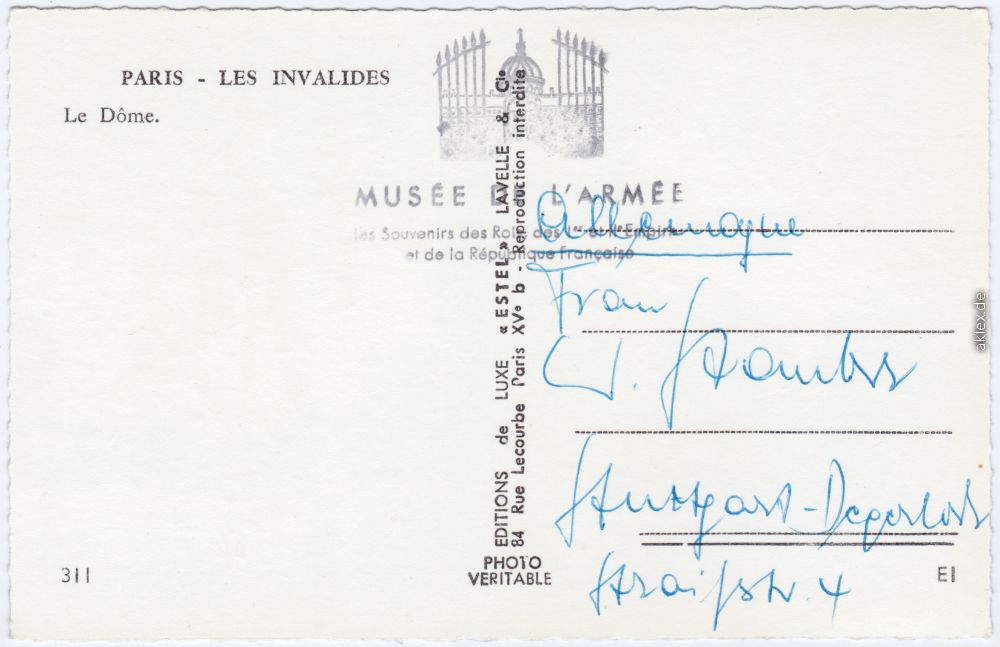 PARIS - LES INVALIDES
Le Dôme.
MUSÉE DE L'ARMÉE
les Souvenirs des Rois des 1er et II e Empire
et de la République Française
EDITIONS de LUXE «ESTEL» LAVELLE & Cie
84 Rue Lecourbe Paris XVe b - Reproduction interdite
PHOTO
VERITABLE
Allemagne
Frau
Stuttgart-Degerloch
str. 4
311
EI
aklex.de